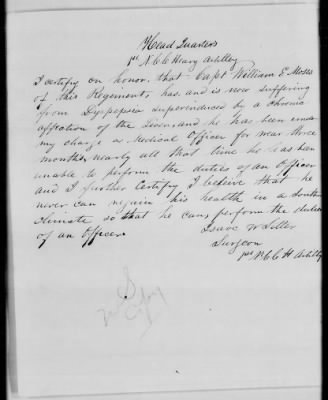 Head Quarters
1st N.C.C Heavy Artillery
I certify on honor, that Capt William E. Moses
of this Regement, has, and is now suffering
from Dyspepsia superinduced by a chronic
affection of the liver, and he has been under
my charge as Medical Officer for near three
months, nearly all that time he has been
unable to perform the duties of an Officer
and I further certify I beleive that he
never can regain his health in a south
climate so that he can, perform the duties
of an Officer.
Isaac
Surgeon
1st N.C.C H Artillery
Copy